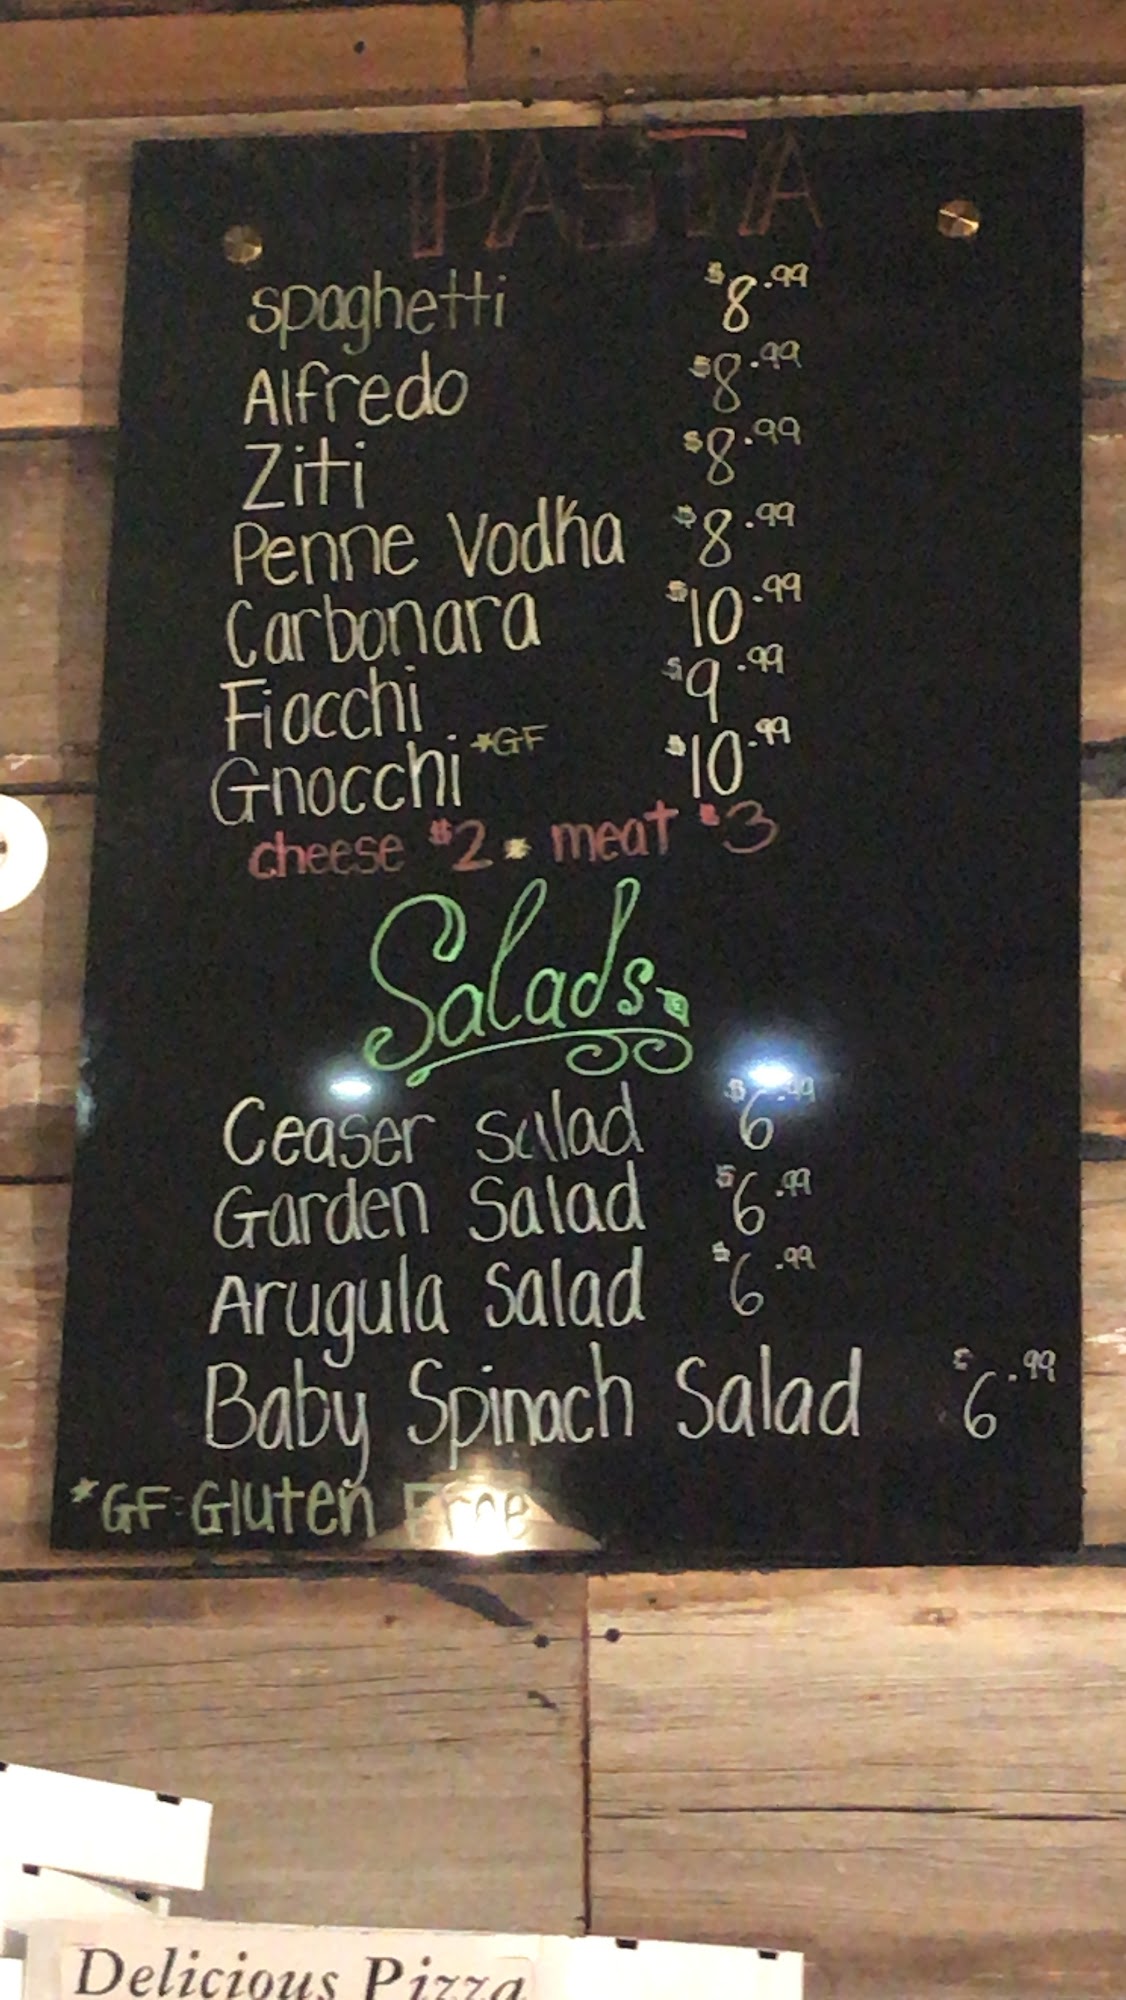 PASTA
spaghetti $8.99
Alfredo $8.99
Ziti $8.99
Penne Vodka $8.99
Carbonara $10.99
Fiocchi $9.99
Gnocchi *GF $10.99
cheese $2 * meat $3
Salads
Ceaser salad $6.99
Garden Salad $6.99
Arugula Salad $6.99
Baby Spinach Salad $6.99
*GF=Gluten Free
Delicious Pizza